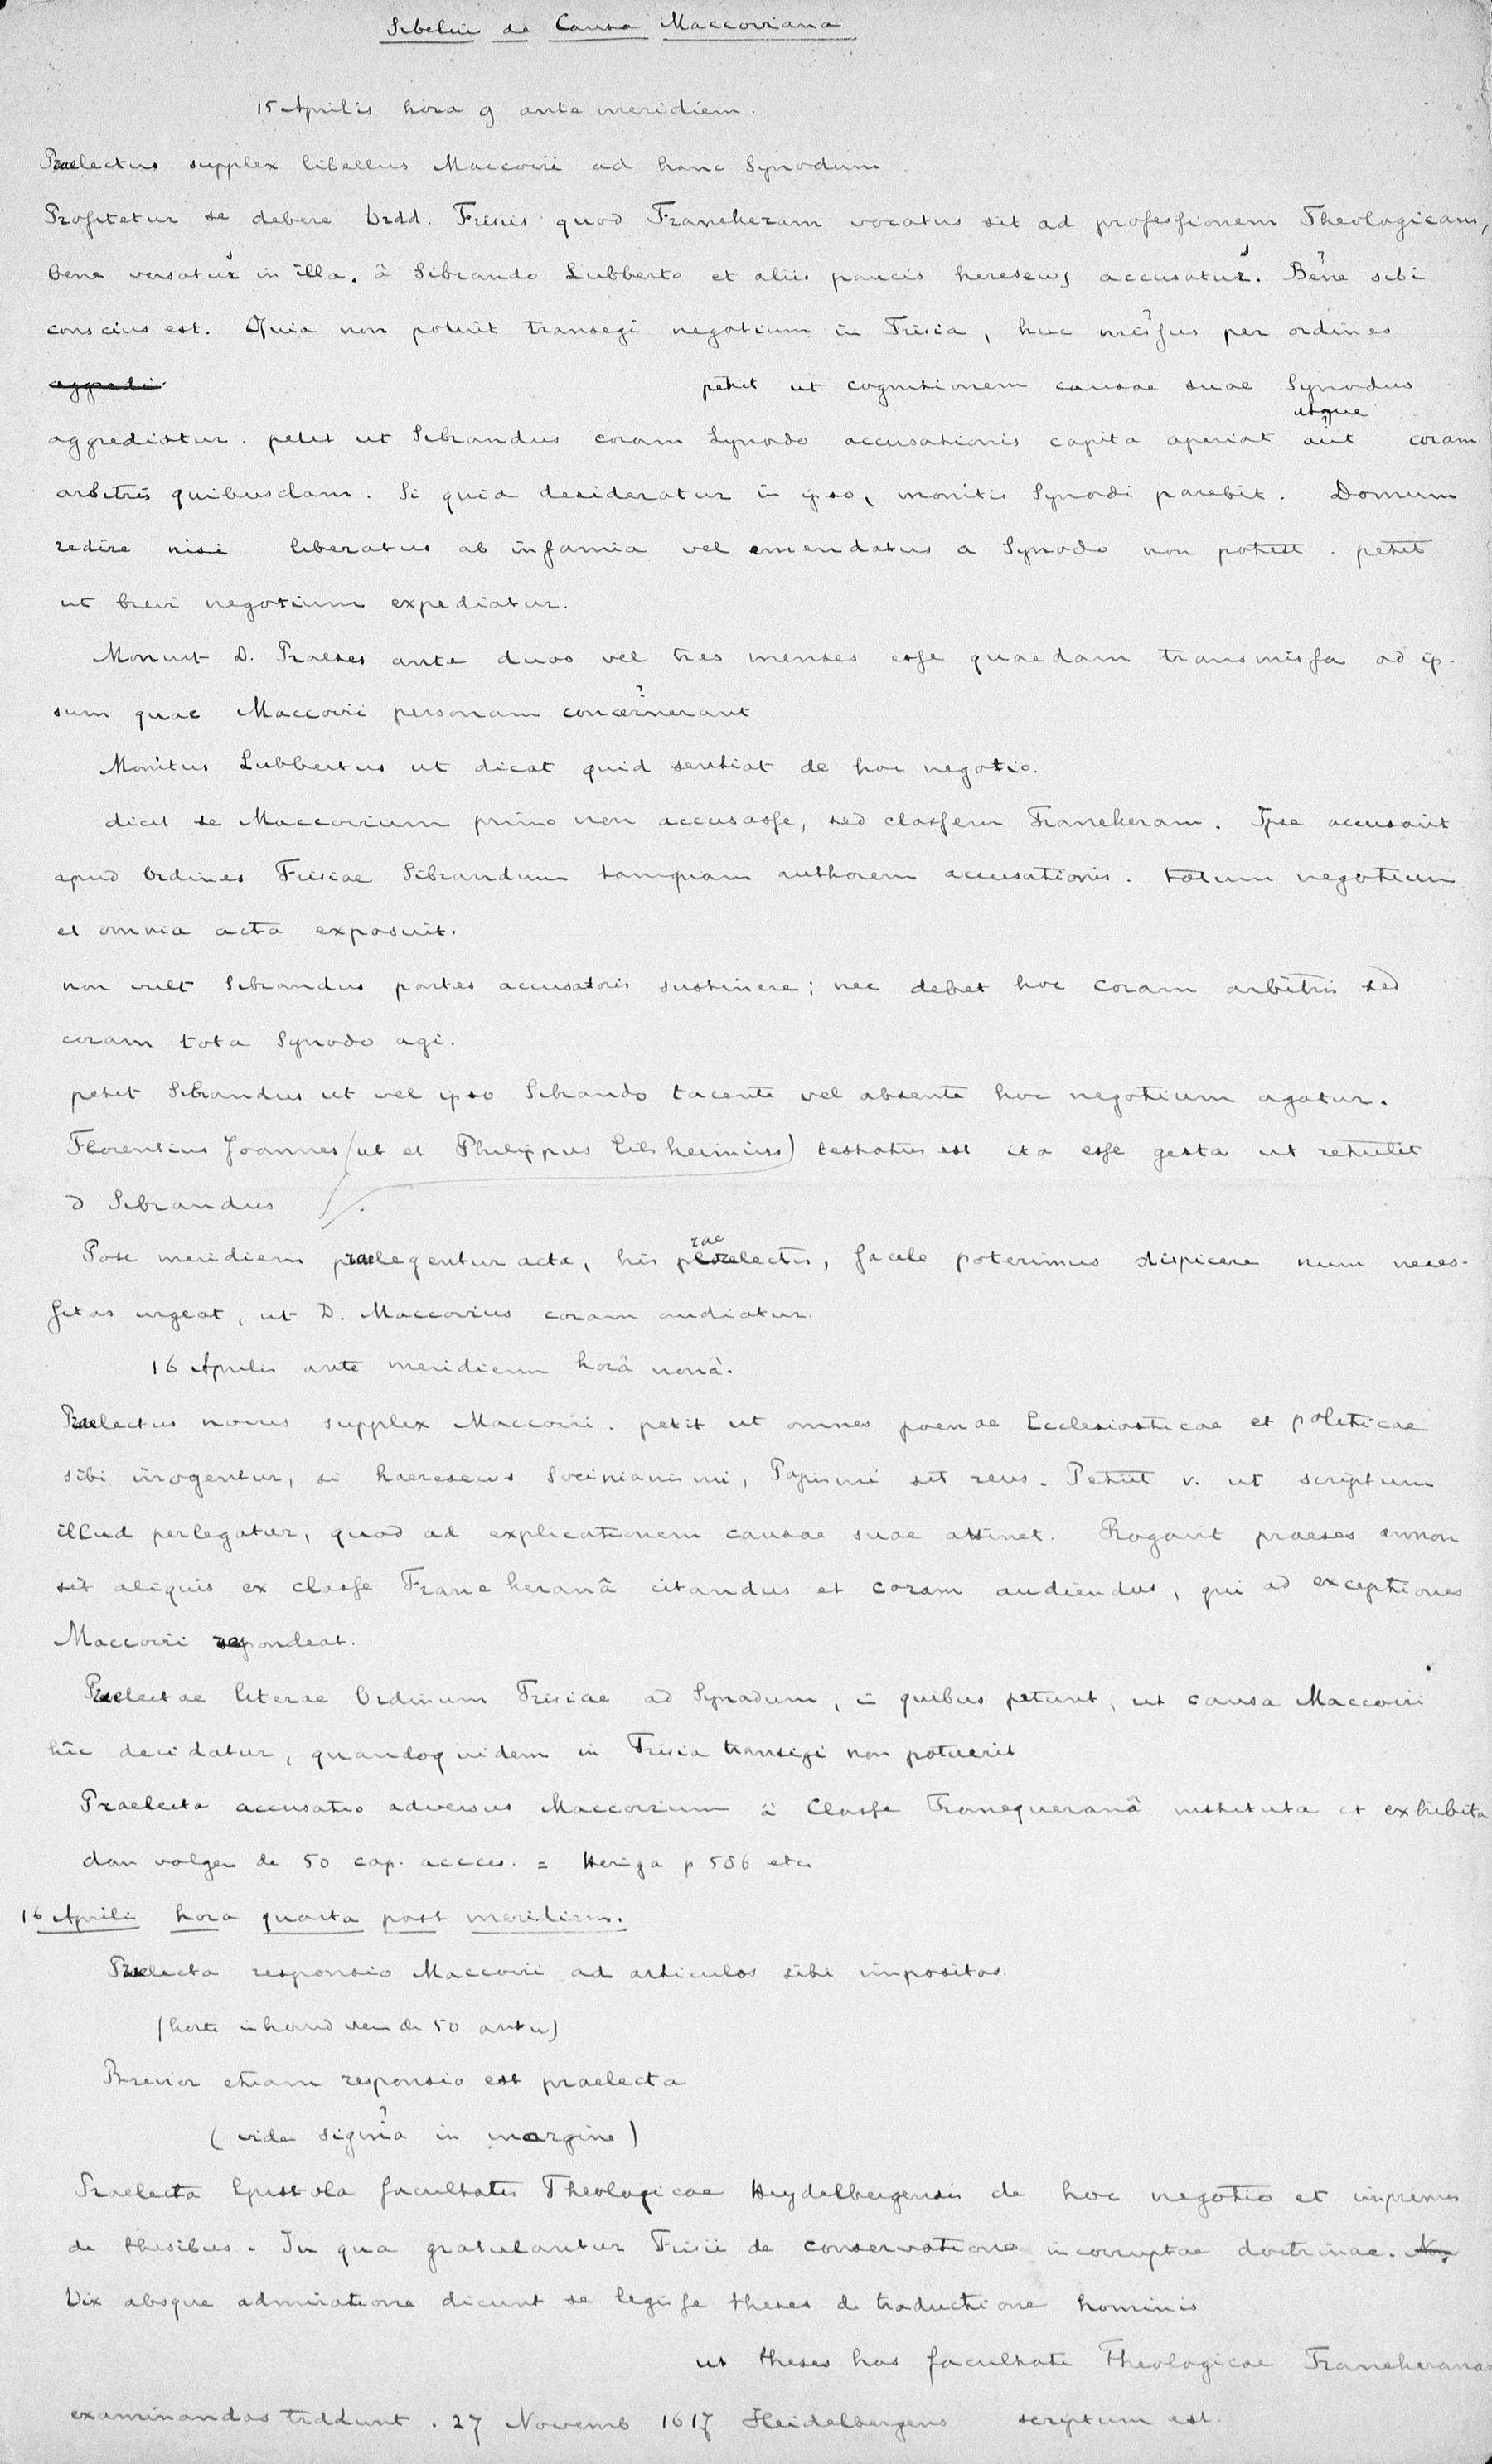 Sibelii de Causa Maccoviana
15 Aprilis hora 9 ante meridiem.
Praelectus supplex libellus Maccovii ad hanc Synodum
Profitetur se debere Ordd. Frisiis quod Franekeram vocatus sit ad professionem Theologicam,
bene versatus in illa. â Sibrando Lubberto et aliis paucis heresews accusatus. Bene sibi
conscius est. Quia non potuit transegi negotium in Frisia, huc missus per ordines
aggredi petit ut cognitionem causae suae Synodus
aggrediatur. petit ut Sibrandus coram Synodo accusationis capita aperiat aut utque coram
arbitris quibusdam. Si quid desideratur in ipso, monitis Synodi parebit. Domum
redire nisi liberatus ab infamia vel emendatus a Synodo non potest. petit
ut brevi negotium expediatur.
Monuit D. Praeses ante duos vel tres menses esse quaedam transmissa ad ip-
sum quae Maccovii personam concernerant
Monitus Lubbertus ut dicat quid sentiat de hoc negotio.
dicit se Maccovium primo non accusasse, sed classem Franekeram. Ipse accusavit
apud Ordines Frisiae Sibrandum tamquam authorem accusationis. totum negotium
et omnia acta exposuit.
non vult Sibrandus partes accusatoris sustinere; nec debet hoc coram arbitris sed
coram tota Synodo agi.
petit Sibrandus ut vel ipso Sibrando tacente vel absente hoc negotium agatur.
Florentius Joannes (ut et Philippus Eilshemius) testatus est ita esse gesta ut retulit
D Sibrandus
Post meridiem praelegentur acta, his praelectis, facile poterimus dispicere num neces-
sitas urgeat, ut D. Maccovius coram audiatur.
16 Aprilis ante meridiem horâ nonâ.
Praelectus novus supplex Maccovii. petit ut omnes poenae Ecclesiasticae et politicae
sibi irrogentur, si haeresews Socinianismi, Papismi sit reus. Petiit v. ut scriptum
illud perlegatur, quod ad explicationem causae suae attinet. Rogavit praeses annon
sit aliquis ex classe Franekeranâ citandus et coram audiendus, qui ad exceptiones
Maccovii respondeat.
Praelectae literae Ordinum Frisiae ad Synodum, in quibus petunt, ut causa Maccovii
hîc decidatur, quandoquidem in Frisia transigi non potuerit
Praelecta accusatio adversus Maccovium â Classe Franequeranâ instituta et exhibita
dan volgen de 50 cap. acces. = Heringa p 506 etc
16 Aprilis hora quarta post meridiem.
Praelecta responsio Maccovii ad articulos sibi impositos.
(korte inhoud van de 50 antw)
Brevior etiam responsio est praelecta
(vide signa in margine)
Praelecta Epistola facultatis Theologicae Heydelbergensis de hoc negotio et imprimis
de thesibus. In qua gratulantur Frisii de conservatione incorruptae doctrinae.
Vix absque admiratione dicunt se legisse theses de traductione hominis
ut theses has facultati Theologicae Franekeranae
examinandas traddunt. 27 Novemb 1617 Heidelbergens scriptum est.